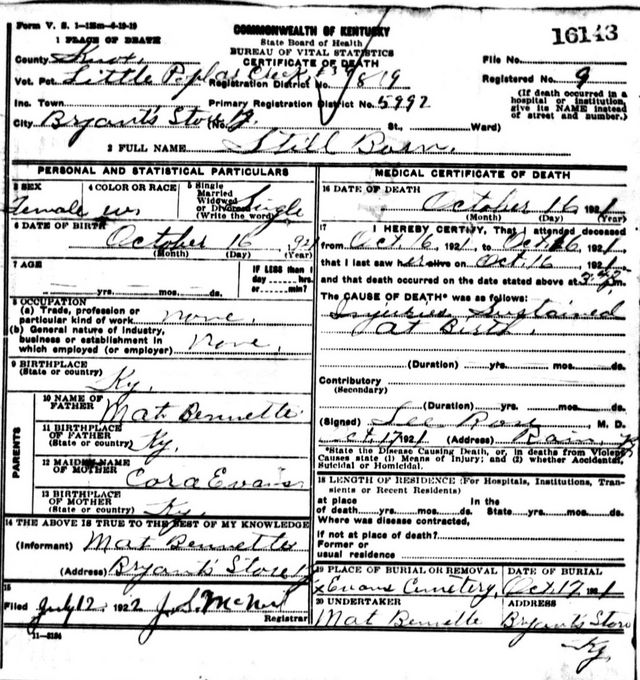 Form V. S. 1-15m-6-19-19
COMMONWEALTH OF KENTUCKY
State Board of Health
BUREAU OF VITAL STATISTICS
CERTIFICATE OF DEATH
16143
1 PLACE OF DEATH
County Knox
File No.
Vot. Pct. Little Poplar Creek #39 Registration District No. 819
Registered No. 9
(If death occurred in a hospital or institution, give its NAME instead of street and number.)
Inc. Town Primary Registration District No. 5992
City Bryant's Store Ky. (No. St., Ward)
2 FULL NAME Still Born.
PERSONAL AND STATISTICAL PARTICULARS
3 SEX Female
4 COLOR OR RACE W.
5 Single Married Widowed or Divorced (Write the word) Single
6 DATE OF BIRTH October 16, 1921
(Month) (Day) (Year)
7 AGE
yrs. mos. ds.
IF LESS than 1 day hrs. or min?
8 OCCUPATION
(a) Trade, profession or particular kind of work none.
(b) General nature of industry, business or establishment in which employed (or employer) none
9 BIRTHPLACE
(State or country) Ky.
PARENTS
10 NAME OF FATHER Mat Bennette
11 BIRTHPLACE OF FATHER (State or country) Ky.
12 MAIDEN NAME OF MOTHER Cora Evans
13 BIRTHPLACE OF MOTHER (State or country) Ky.
14 THE ABOVE IS TRUE TO THE BEST OF MY KNOWLEDGE
(Informant) Mat Bennette
(Address) Bryant's Store Ky
15
Filed July 12, 1922 J. S. McNeil
Registrar
11-3184
MEDICAL CERTIFICATE OF DEATH
16 DATE OF DEATH October 16 1921
(Month) (Day) (Year)
17 I HEREBY CERTIFY, That I attended deceased
from Oct 16, 1921, to Oct 16, 1921,
that I last saw her alive on Oct. 16 1921
and that death occurred on the date stated above at m.
The CAUSE OF DEATH* was as follows:
Injuries Sustained
at Birth.
(Duration) yrs. mos. ds.
Contributory
(Secondary)
(Duration) yrs. mos. ds.
(Signed) M. D.
Oct. 17 1921 (Address) Rain, Ky
*State the Disease Causing Death, or, in deaths from Violent
Causes state (1) Means of Injury; and (2) whether Accidental,
Suicidal or Homicidal.
18 LENGTH OF RESIDENCE (For Hospitals, Institutions, Transients or Recent Residents)
at place of death yrs. mos. ds. In the State yrs. mos. ds.
Where was disease contracted,
If not at place of death?
Former or usual residence
19 PLACE OF BURIAL OR REMOVAL Evans Cemetery,
DATE OF BURIAL Oct. 17 1921
20 UNDERTAKER Mat Bennette
ADDRESS Bryant's Store
Ky.